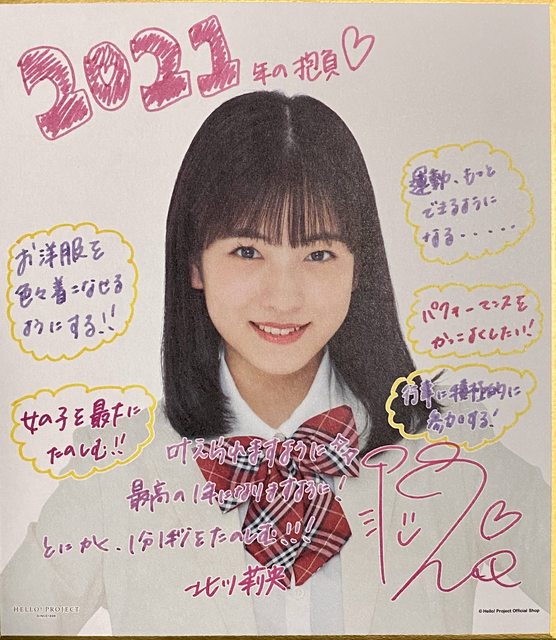 2021年の抱負♡
運動、もっと
できるように
なる・・・・・
お洋服を
色々着こなせる
ようにする!!
パフォーマンスを
かっこよくしたい!
女の子を最大に
たのしむ!!
行事に積極的に
参加する!
叶えられますように
最高の1年になりますように!
とにかく、1分1秒をたのしむ!!!
北川莉央
HELLO! PROJECT
© Hello! Project Official Shop